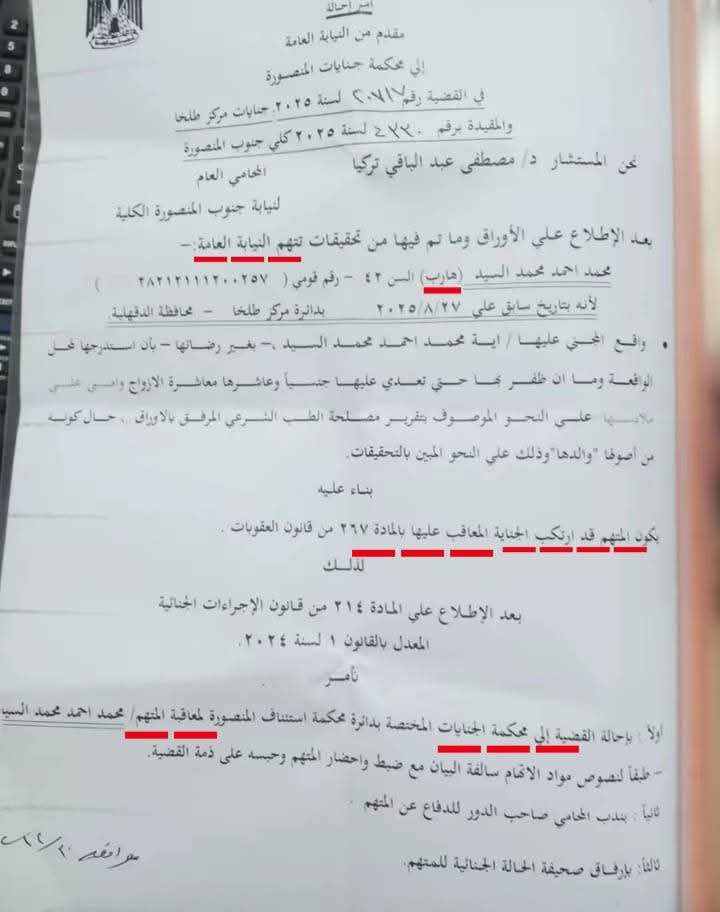 أمر إحالة
مقدم من النيابة العامة
إلي محكمة جنايات المنصورة
في القضية رقم ٢٠٧١٧ لسنة ٢٠٢٥ جنايات مركز طلخا
والمقيدة برقم ٤٣٣٠ لسنة ٢٠٢٥ كلي جنوب المنصورة
نحن المستشار د/ مصطفى عبد الباقي تركيا
المحامي العام
لنيابة جنوب المنصورة الكلية
بعد الإطلاع علي الأوراق وما تم فيها من تحقيقات تتهم النيابة العامة:-
محمد احمد محمد السيد (هارب) السن ٤٢ - رقم قومي ( ٢٨٢١٢١١١٢٠٠٢٥٧ )
لأنه بتاريخ سابق علي ٢٠٢٥/٨/٢٧ بدائرة مركز طلخا - محافظة الدقهلية.
• واقع المجني عليها / اية محمد احمد محمد السيد ،- بغير رضائها - بأن استدرجها لمحل
الواقعة وما ان ظفر بها حتي تعدي عليها جنسياً وعاشرها معاشرة الازواج وامني علي
ملابسها علي النحو الموصوف بتقرير مصلحة الطب الشرعي المرفق بالاوراق ، حال كونه
من أصولها "والدها" وذلك علي النحو المبين بالتحقيقات.
بناء عليه
يكون المتهم قد ارتكب الجناية المعاقب عليها بالمادة ٢٦٧ من قانون العقوبات .
لذلك
بعد الإطلاع علي المادة ٢١٤ من قانون الإجراءات الجنائية
المعدل بالقانون ١ لسنة ٢٠٢٤.
نأمر
أولاً : بإحالة القضية إلي محكمة الجنايات المختصة بدائرة محكمة استئناف المنصورة لمعاقبة المتهم/ محمد احمد محمد السيد
- طبقاً لنصوص مواد الاتهام سالفة البيان مع ضبط واحضار المتهم وحبسه على ذمة القضية.
ثانياً : بندب المحامي صاحب الدور للدفاع عن المتهم .
ثالثاً: بإرفاق صحيفة الحالة الجنائية للمتهم.